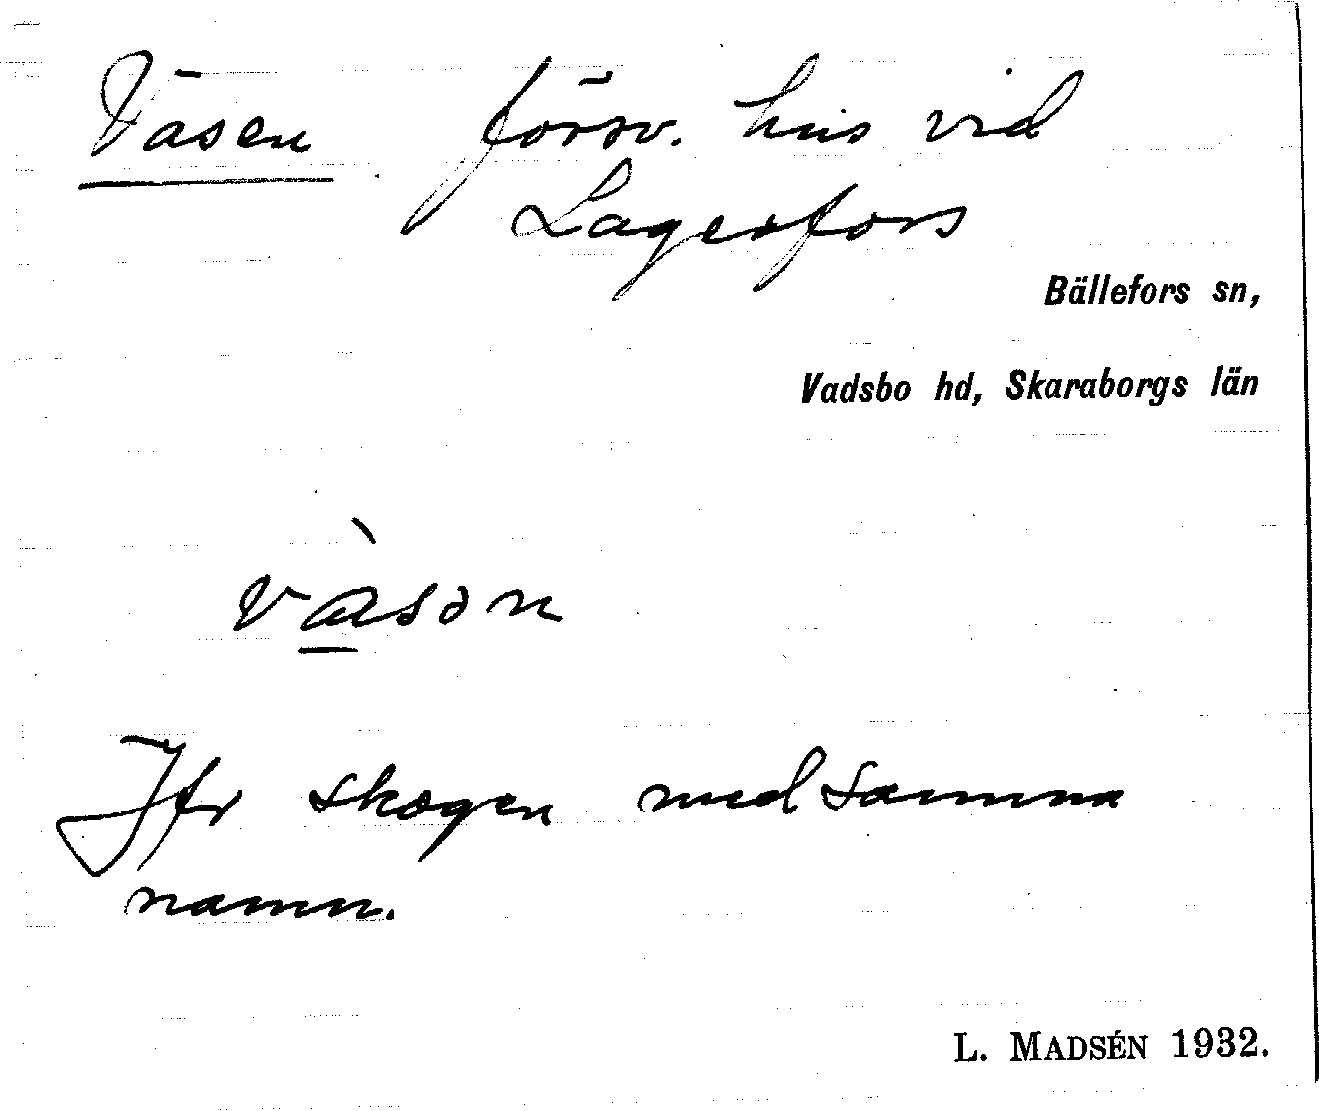 Väsen försv. hus vid
Lagersfors
Bällefors sn,
Vadsbo hd, Skaraborgs län
vàsən
Jfr skogen med samma
namn.
L. MADSÉN 1932.